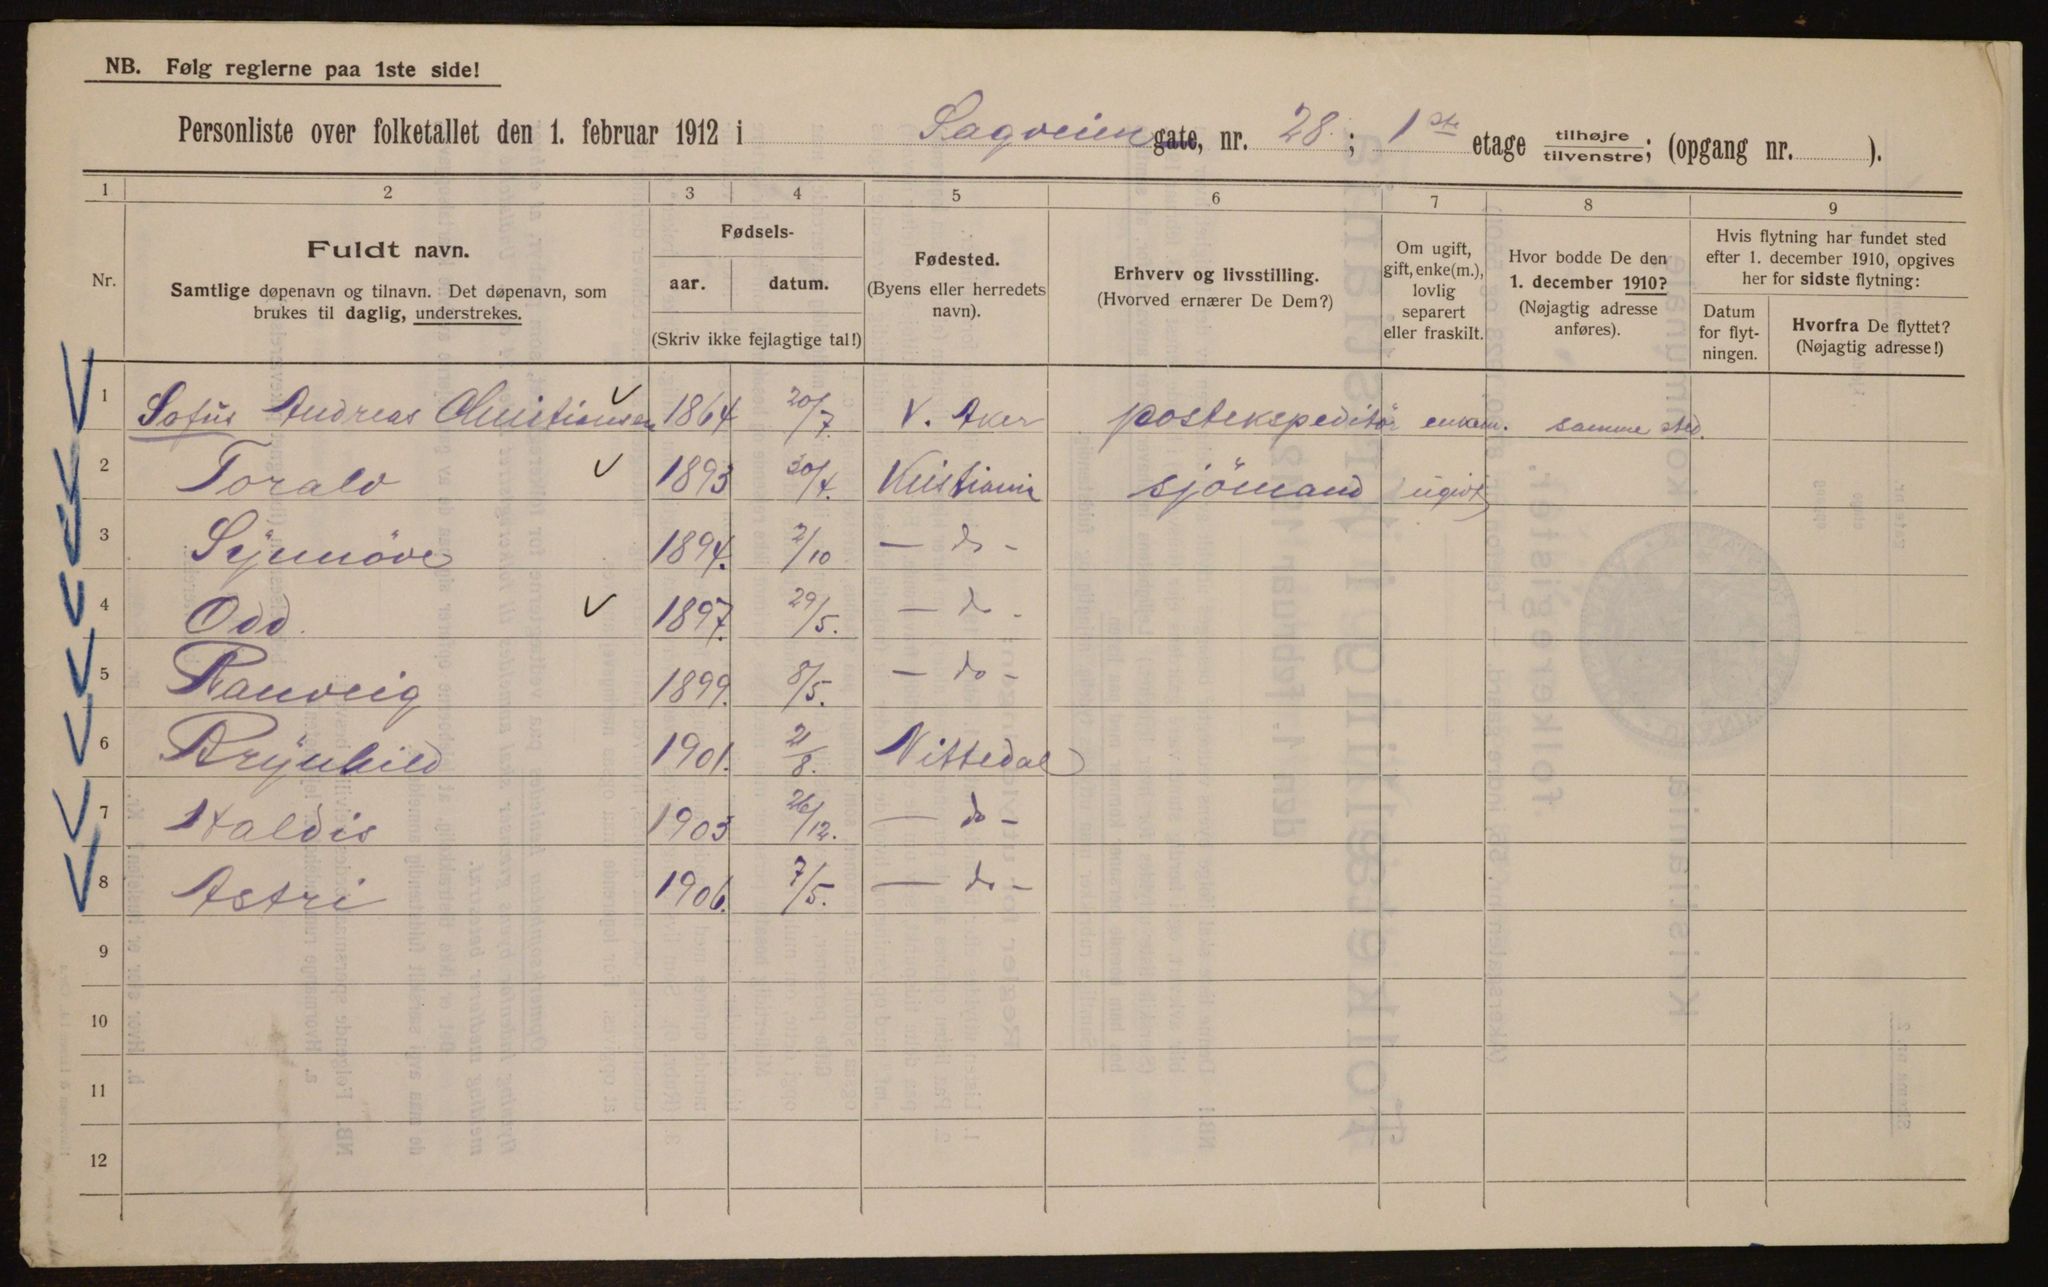 NB. Følg reglerne paa 1ste side!
Personliste over folketallet den 1. februar 1912 i Sagveien gate, nr. 28 ; 1ste etage tilhøjre tilvenstre; (opgang nr. ).
1 2 3 4 5 6 7 8 9
Nr.
Fuldt navn.
Samtlige døpenavn og tilnavn. Det døpenavn, som
brukes til daglig, understrekes.
Fødsels-
aar. datum.
(Skriv ikke fejlagtige tal!)
Fødested.
(Byens eller herredets
navn).
Erhverv og livsstilling.
(Hvorved ernærer De Dem?)
Om ugift,
gift, enke(m.),
lovlig
separert
eller fraskilt.
Hvor bodde De den
1. december 1910?
(Nøjagtig adresse
anføres).
Hvis flytning har fundet sted
efter 1. december 1910, opgives
her for sidste flytning:
Datum
for flyt-
ningen.
Hvorfra De flyttet?
(Nøjagtig adresse!)
1 Sofus Andreas Christiansen 1864 20/7. V. Aker postekspeditør enkem. samme sted.
2 Toralv 1893 30/4. Kristiania sjömand ugift
3 Synnöve 1894. 2/10 — do -
4 Odd. 1897. 29/5. — do -
5 Ranveig 1899. 8/5. — do -
6 Brynhild 1901. 21/8. Nittedal
7 Haldis 1903 26/12. — do -
8 Astri 1906. 7/5. — do -
9
10
11
12